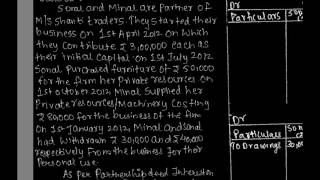 Sonal and Minal are Partner of
M/s Shanti traders. They Started their
business on 1st April 2012 on Which
they Contribute ₹ 3,00,000 Each as
their initial Capital on 1st July 2012
Sonal Purchased furniture of ₹ 50,000
for the firm her Private resources on
1st october 2012 Minal Supplied her
Private resources/Machinery Costing
₹ 80000 for the business of the firm
on 1st January 2012, Minal and Sonal
had withdrawn ₹ 30,000 and ₹ 40000
respectively From the business for their
Personal use.
As per Partnership deed Interest on
Dr
Particulars
Dr
Particulars
To Drawings